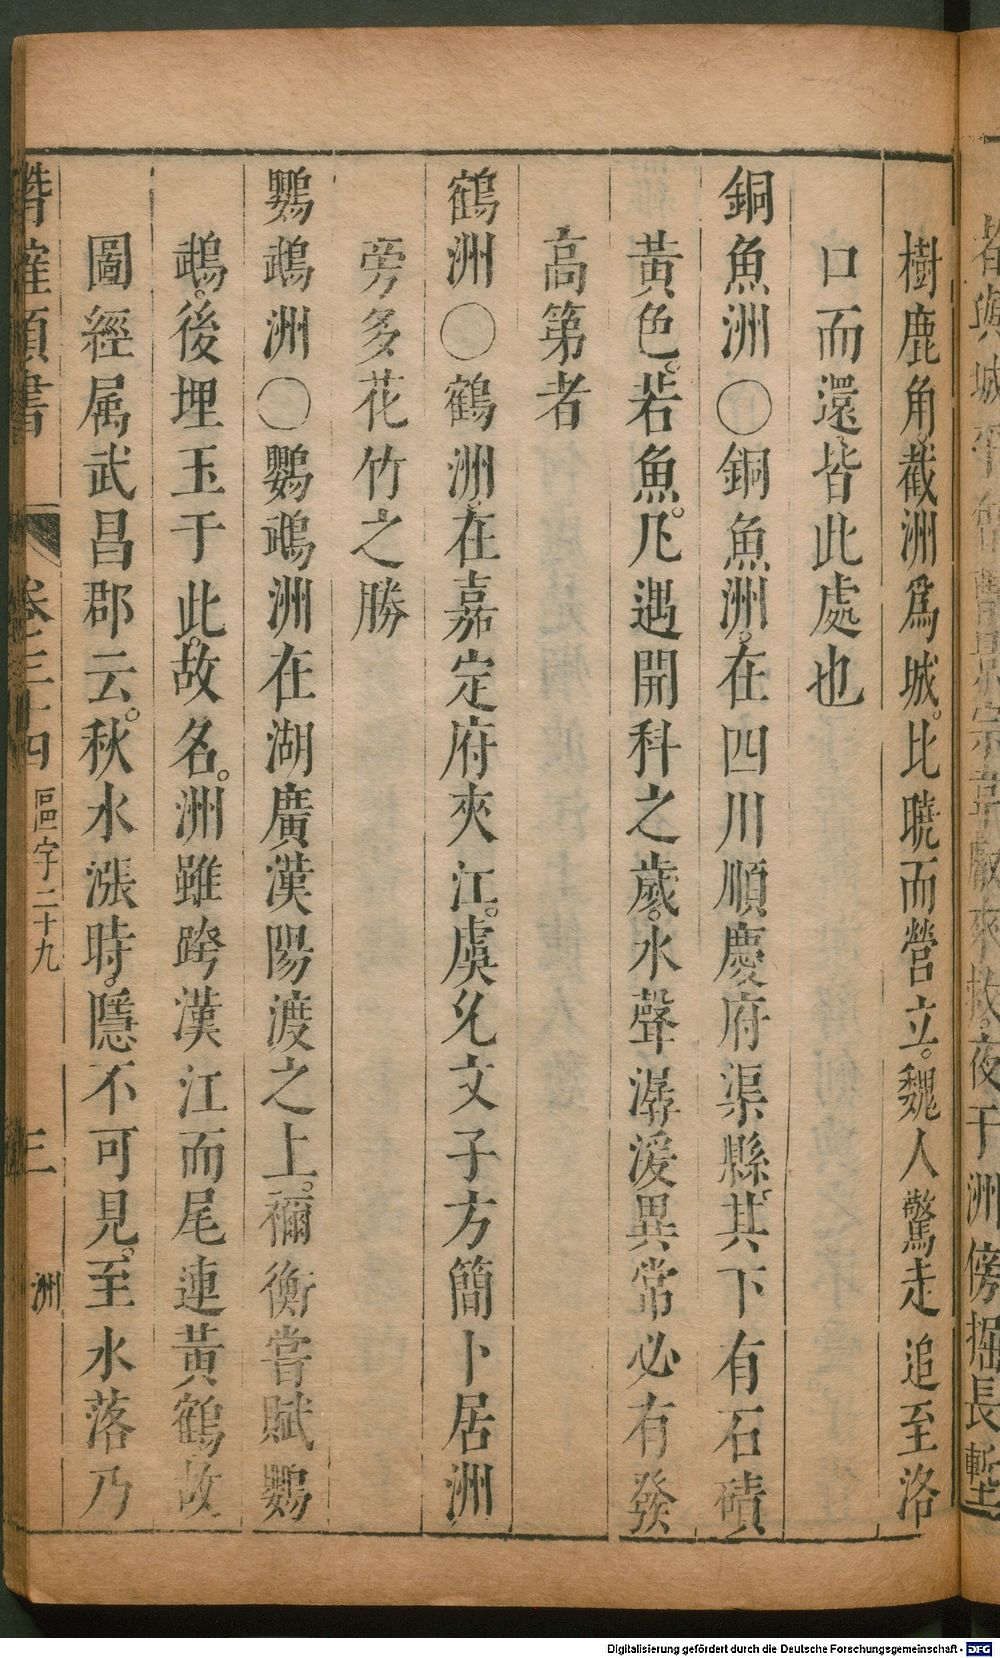 樹鹿角、截洲爲城。比曉而營立。魏人驚走追至洛
口而還、皆此處也
銅魚洲〇銅魚洲。在四川順慶府渠縣。其下有石磧
黃色。若魚。凡遇開科之歲。水聲潺湲異常必有發
高第者
鶴洲〇鶴洲、在嘉定府夾江。虞允文子方簡卜居洲
旁多花竹之勝
鸚鵡洲〇鸚鵡洲在湖廣漢陽渡之上。禰衡嘗賦鸚
鵡。後埋玉于此。故名。洲雖跨漢江而尾連黃鶴故
圖經属武昌郡云。秋水漲時。隱不可見。至水落乃
潛確類書
卷三十四
區宇二十九
三
洲
Digitalisierung gefördert durch die Deutsche Forschungsgemeinschaft - DFG